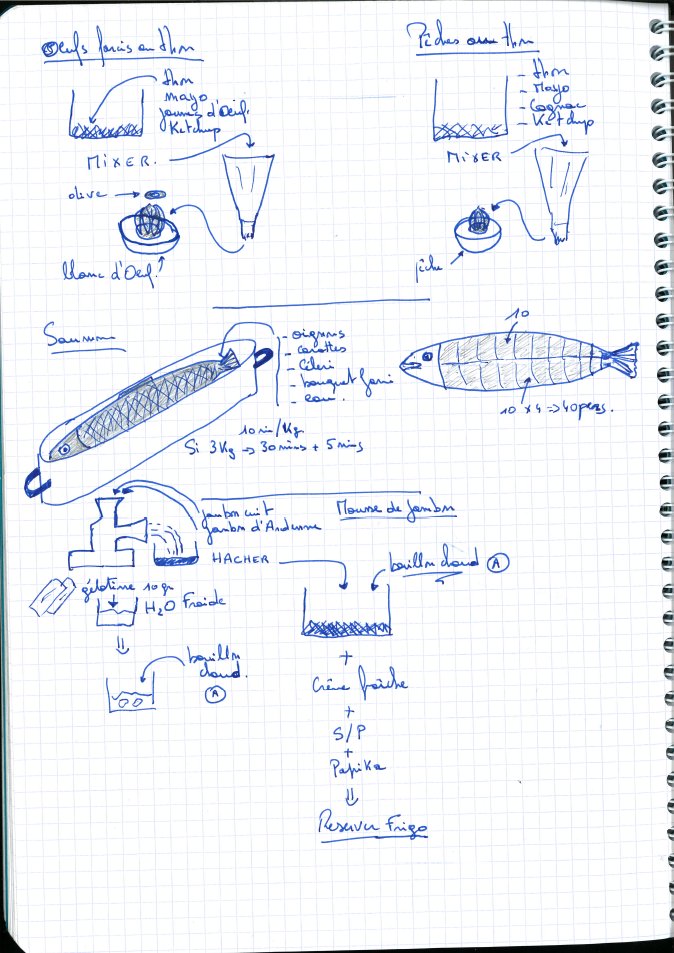 Oeufs farcis au thon
thon
mayo
jaunes d'Oeuf.
Ketchup
MIXER.
olive
blanc d'Oeuf.
Pêches au thon
- thon
- Mayo
- Cognac
- Ketchup
MIXER
pêche
Saumon
- oignons
- carottes
- Céleri
- bouquet garni
- eau.
10 min/Kg.
Si 3Kg => 30 mins + 5 mins
10
10 x 4 => 40 pers.
Mousse de Jambon
jambon cuit
jambon d'Ardenne
HACHER
bouillon chaud A
gélatine 10gr
H2O Froide
bouillon
chaud.
A
+
Crème fraîche
+
S/P
+
Paprika
Reserver Frigo